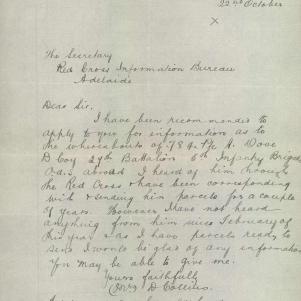 22nd October
x
The Secretary
Red Cross Information Bureau
Adelaide
Dear Sir.
I have been recommended to
apply to you for information as to
the whereabouts of 784 Pte A. Dove
D Coy 27th Battalion 6th Infantry Brigade
abroad I heard of him through
the Red Cross & have been corresponding
with & sending him parcels for a couple
of years. However I have not heard
anything from him since February of
this year & as I have parcels ready to
send I would be glad of any information
you may be able to give me.
Yours faithfully
(Mrs) D Collins